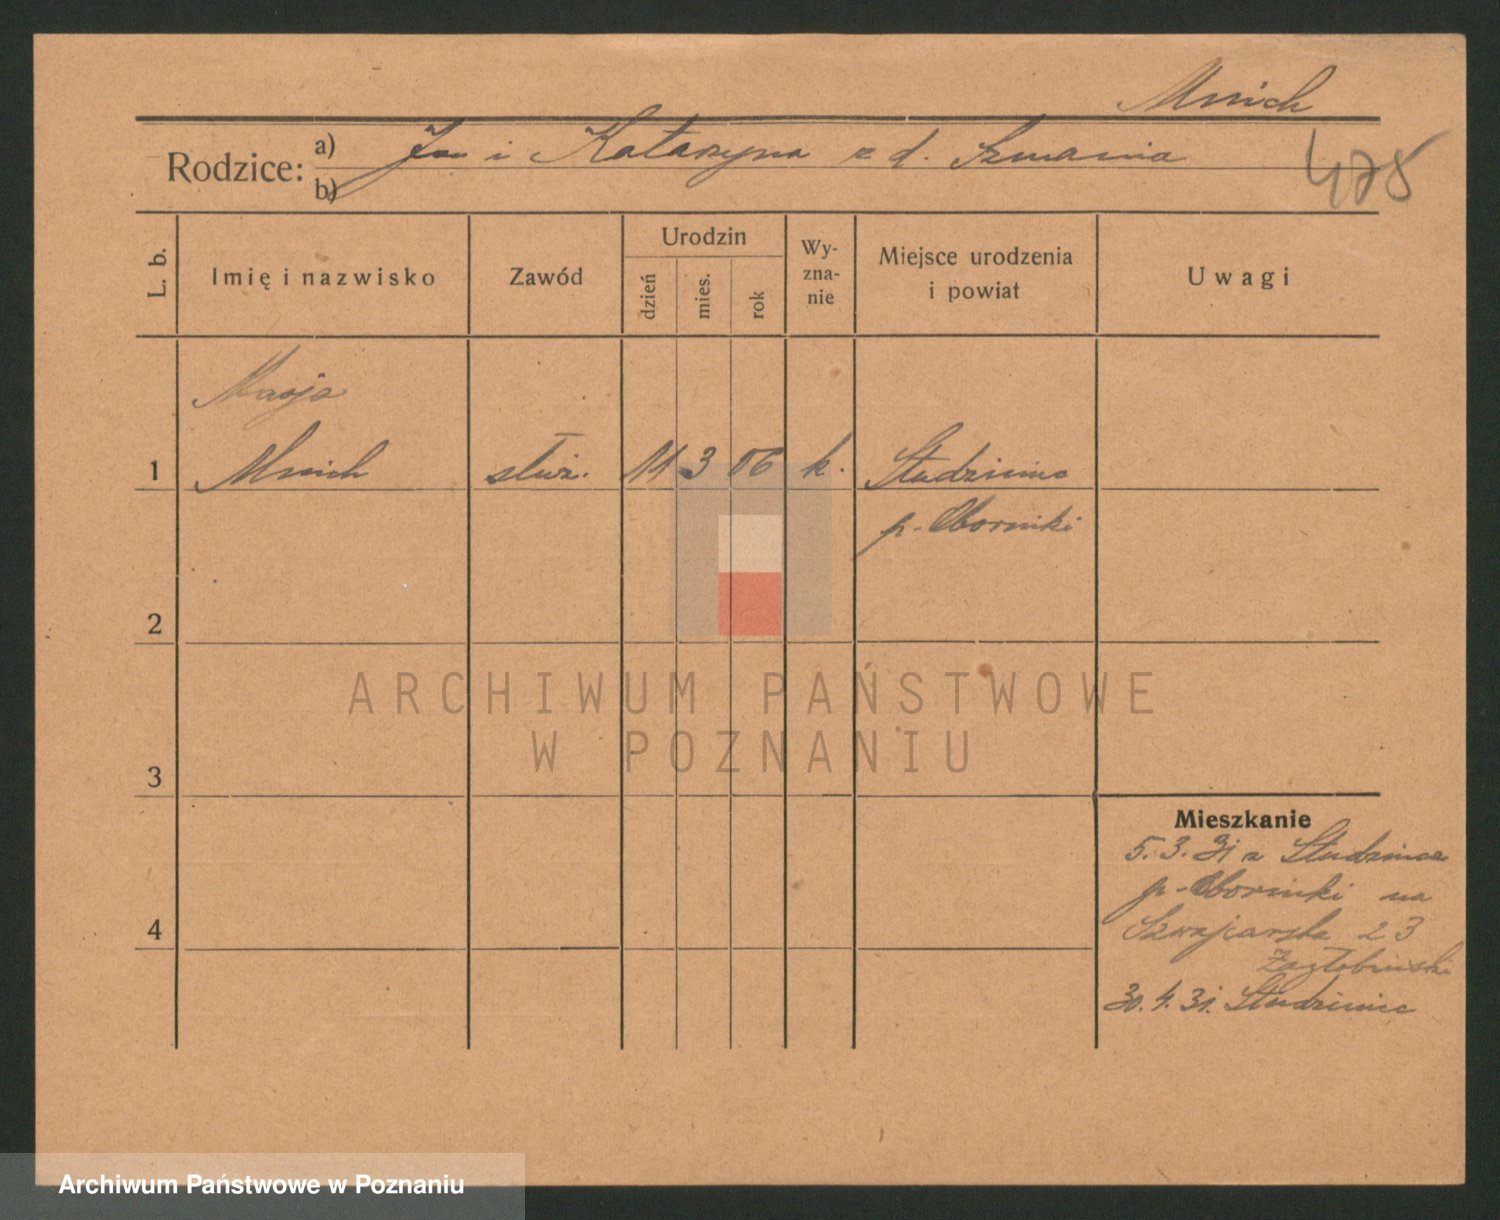 Mnich
Rodzice: a) Jan i Katarzyna z d. Szmania
b)
478
L. b.
Imię i nazwisko
Zawód
Urodzin
dzień
mies.
rok
Wy-
zna-
nie
Miejsce urodzenia
i powiat
Uwagi
Marja
1 Mnich służ. 11 3 06 k. Studziniec
p. Oborniki
2
3
4
Mieszkanie
5. 3. 31 z Studzińca
p. Oborniki na
Szwajcarska 23
30. 4. 31. Studziniec
ARCHIWUM PAŃSTWOWE
W POZNANIU
Archiwum Państwowe w Poznaniu